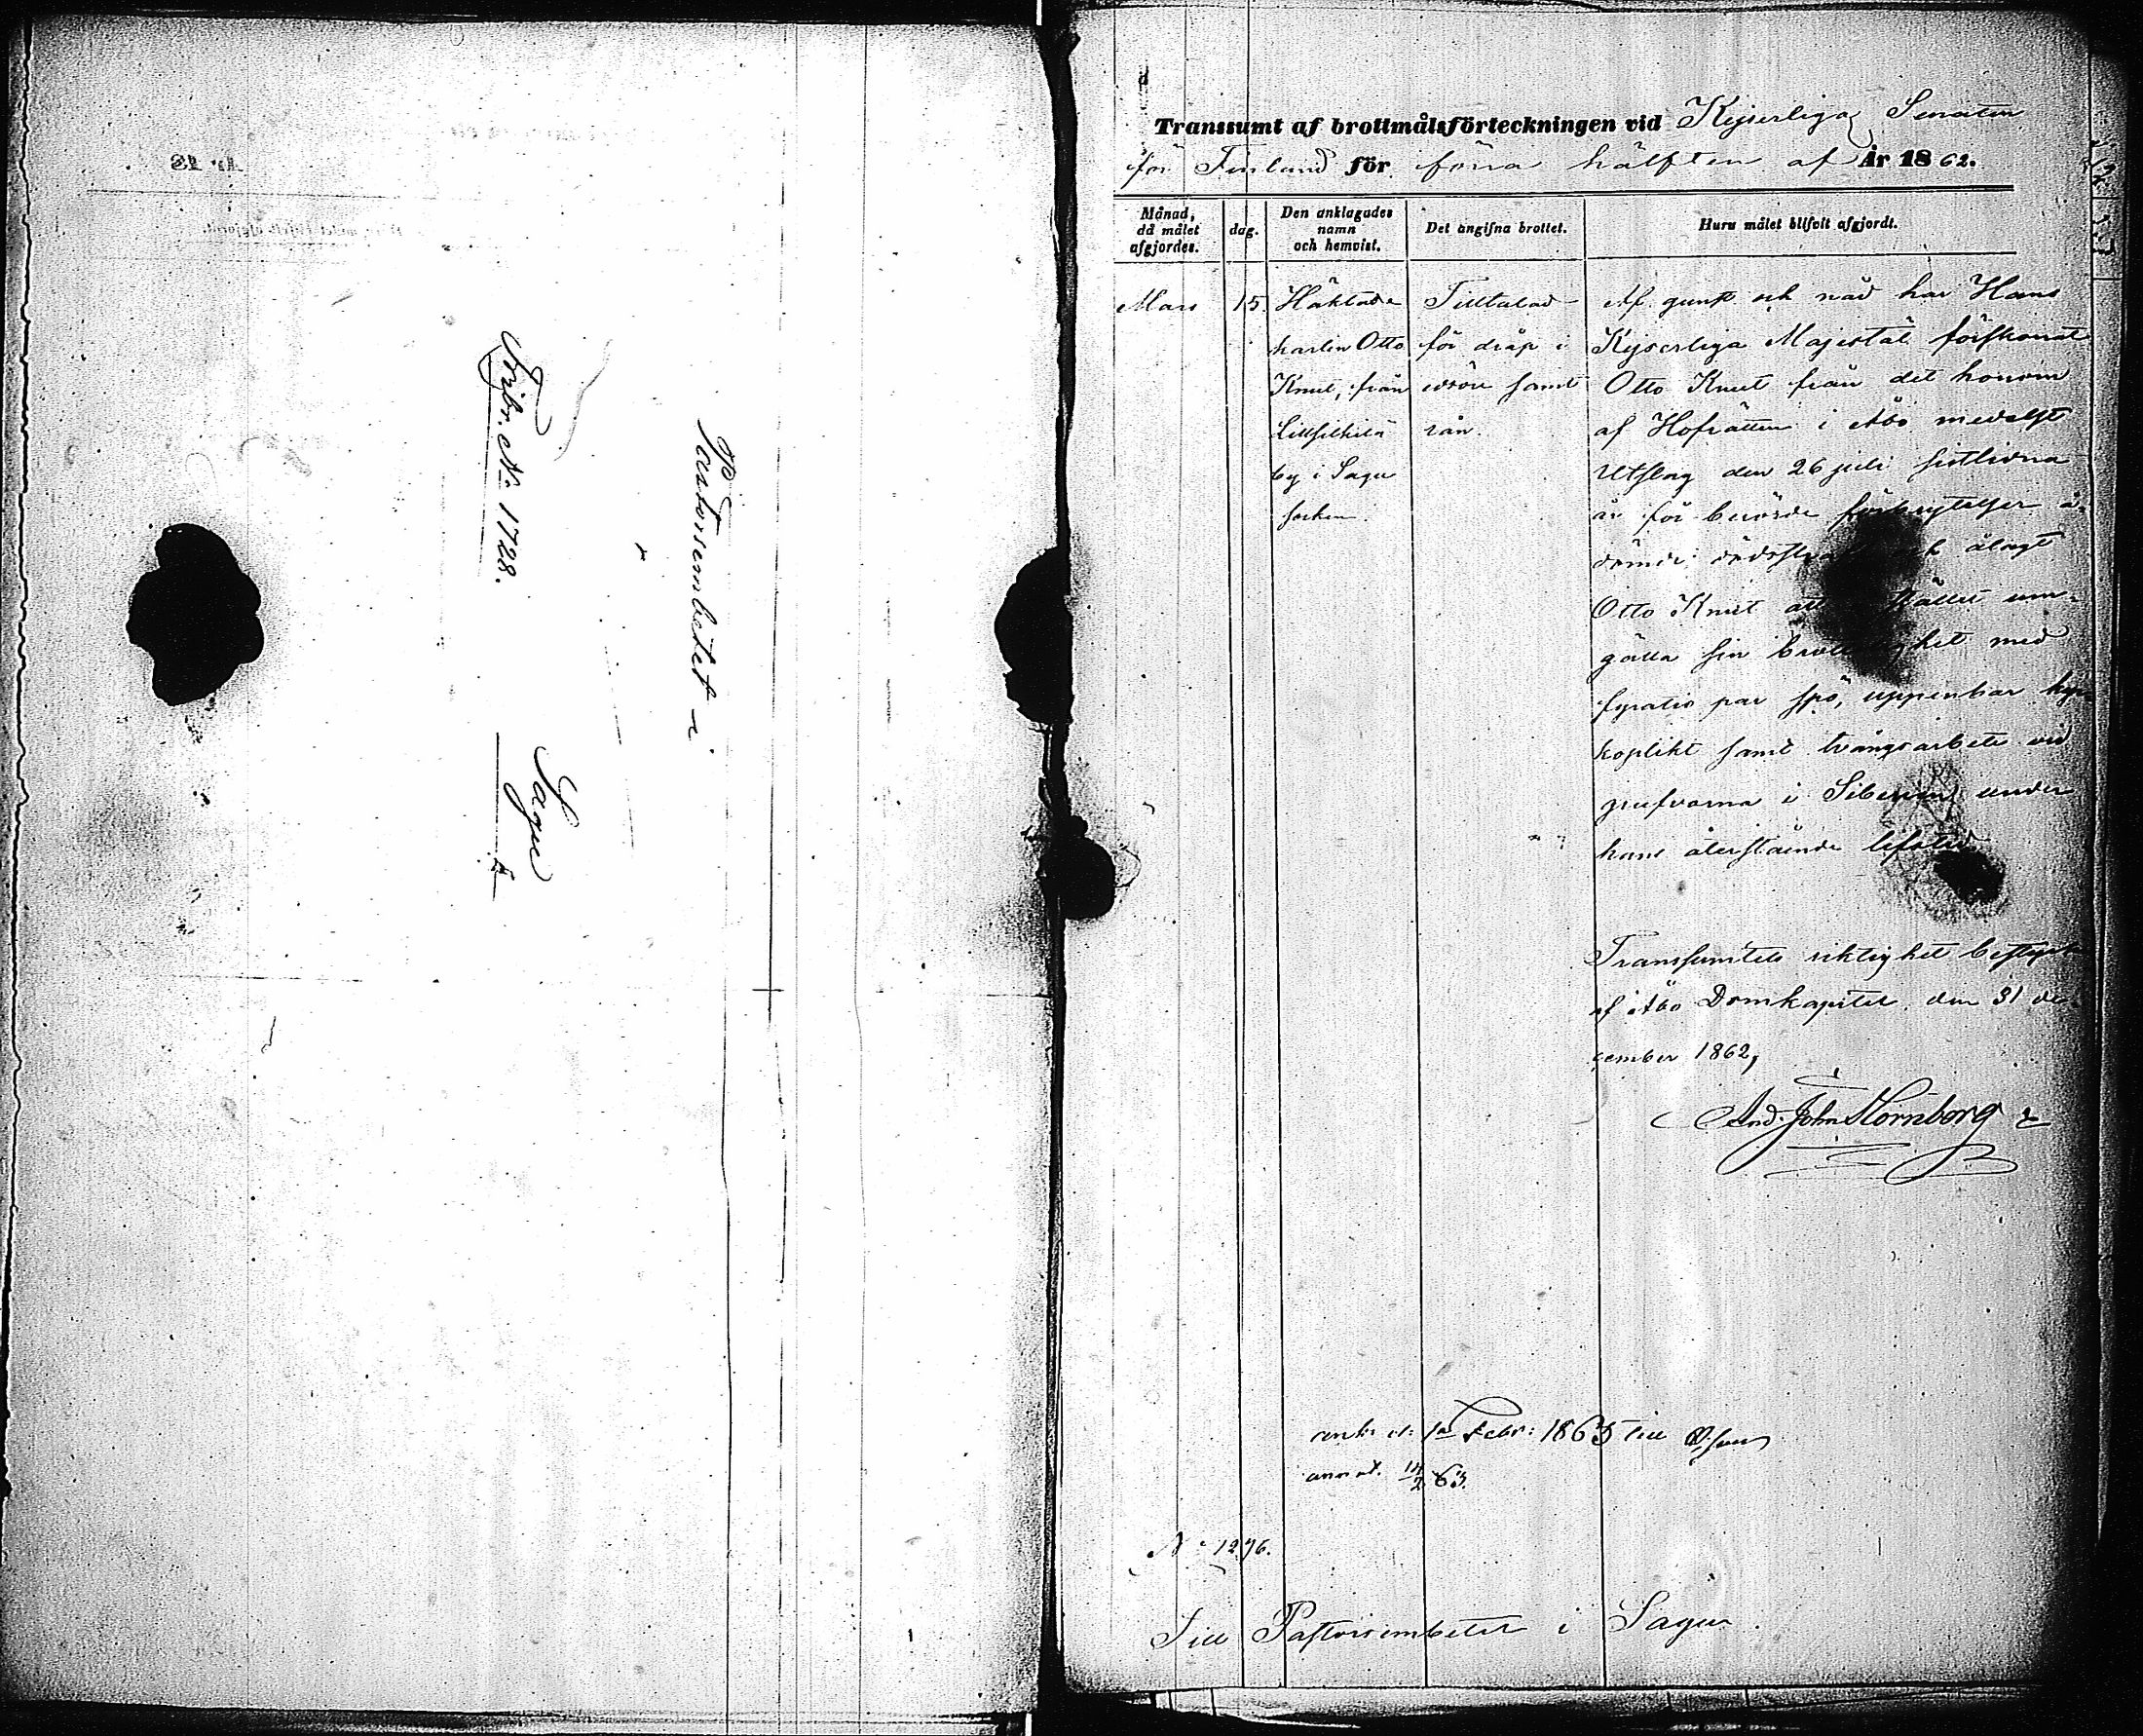 Pastorsembetet i
Sagu
Fribr. N:o 1728.
Transsumt af brottmålsförteckningen vid Kejserliga Senaten
för Finland för förra hälften af År 1862.
Månad, då målet afgjordes.
dag.
Den anklagades namn och hemvist.
Det angifna brottet.
Huru målet blifvit afgjordt.
Mars
15.
Häktade
karlen Otto
Knut, från
by i Sagu
socken.
Tilltalad
för dråp i
edsöre samt
rån.
Af gunst och nåd har Hans
Kejserliga Majestät förskonat
Otto Knut från det honom
af Hofrätten i Åbo medelst
Utslag den 26 juli sistlidna
år för berörde förbrytelser å-
dömde dödsstraff och ålagt
Otto Knut att stället um-
gälla sin brottslighet med
fyratio par spö, uppenbar kyr-
koplikt samt tvångsarbete vid
grufvorna i Siberien under
hans återstående lifstid
Transsumtets riktighet bestyrkt
af Åbo Domkapitel, den 31 de-
cember 1862,
And. John Hornborg
ank. d: 1a Febr: 1863 till
annot. 14/2 63.
N:o 1276.
Till Pastorsembetet i Sagu.